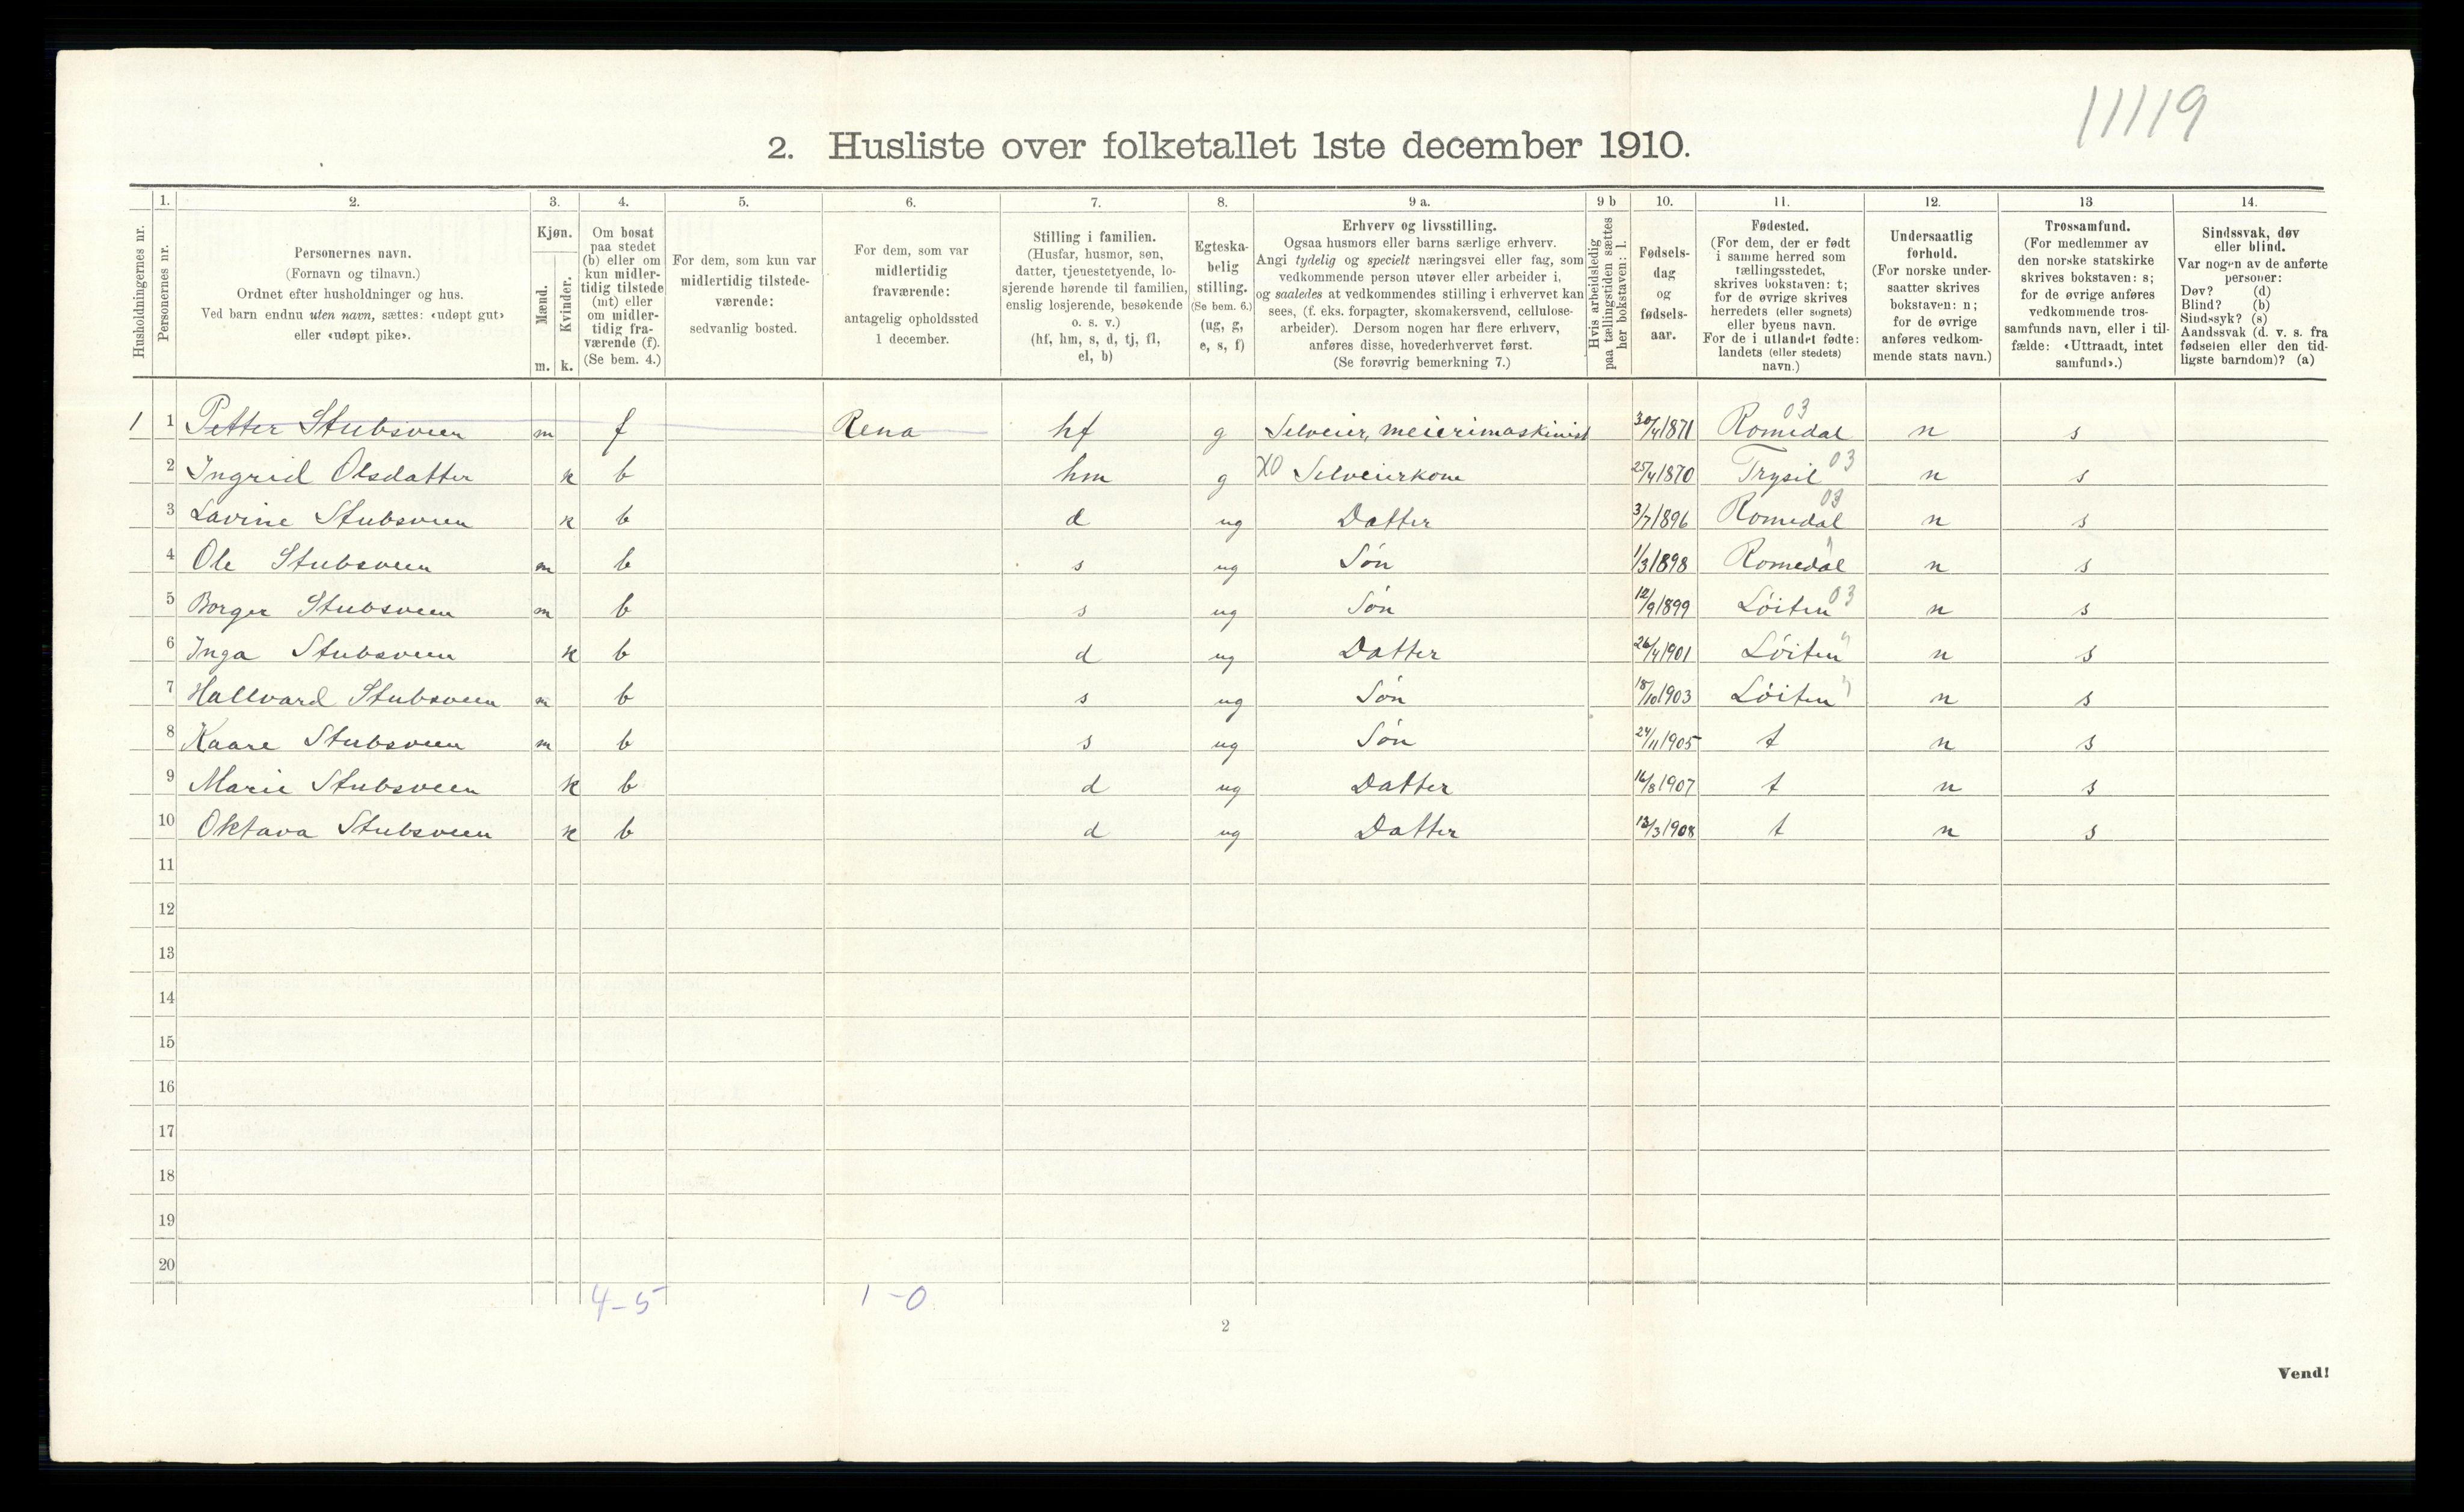 11119
2. Husliste over folketallet 1ste december 1910.
Husholdningernes nr.
1.
Personernes nr.
2.
Personernes navn.
(Fornavn og tilnavn.)
Ordnet efter husholdninger og hus.
Ved barn endnu uten navn, sættes: «udøpt gut»
eller «udøpt pike».
3.
Kjøn.
Mænd.
Kvinder.
m. k.
4.
Om bosat
paa stedet
(b) eller om
kun midler-
tidig tilstede
(mt) eller
om midler-
tidig fra-
værende (f).
(Se bem. 4.)
5.
For dem, som kun var
midlertidig tilstede-
værende:
sedvanlig bosted.
6.
For dem, som var
midlertidig
fraværende:
antagelig opholdssted
1 december.
7.
Stilling i familien.
(Husfar, husmor, søn,
datter, tjenestetyende, lo-
sjerende hørende til familien,
enslig losjerende, besøkende
o. s. v.)
(hf, hm, s, d, tj, fl,
el, b)
8.
Egteska-
belig
stilling.
(Se bem. 6.)
(ug, g,
e, s, f)
9 a.
Erhverv og livsstilling.
Ogsaa husmors eller barns særlige erhverv.
Angi tydelig og specielt næringsvei eller fag, som
vedkommende person utøver eller arbeider i,
og saaledes at vedkommendes stilling i erhvervet kan
sees, (f. eks. forpagter, skomakersvend, cellulose-
arbeider). Dersom nogen har flere erhverv,
anføres disse, hovederhvervet først.
(Se forøvrig bemerkning 7.)
9 b
Hvis arbeidsledig
paa tællingstiden sættes
her bokstaven: l.
10.
Fødsels-
dag
og
fødsels-
aar.
11.
Fødested.
(For dem, der er født
i samme herred som
tællingsstedet,
skrives bokstaven: t;
for de øvrige skrives
herredets (eller sognets)
eller byens navn.
For de i utlandet fødte:
landets (eller stedets)
navn.)
12.
Undersaatlig
forhold.
(For norske under-
saatter skrives
bokstaven: n;
for de øvrige
anføres vedkom-
mende stats navn.)
13
Trossamfund.
(For medlemmer av
den norske statskirke
skrives bokstaven: s;
for de øvrige anføres
vedkommende tros-
samfunds navn, eller i til-
fælde: «Uttraadt, intet
samfund».)
14.
Sindssvak, døv
eller blind.
Var nogen av de anførte
personer:
Døv? (d)
Blind? (b)
Sindssyk? (s)
Aandssvak (d. v. s. fra
fødselen eller den tid-
ligste barndom)? (a)
1 1 Petter Stubsveen m f Rena hf g Selveier, meierimaskinist 30/4 1871 Romedal 03 n s
2 Ingrid Olsdatter k b hm g XO Selveierkone 25/4 1870 Trysil 03 n s
3 Lavine Stubsveen k b d ug Datter 3/7 1896 Romedal 03 n s
4 Ole Stubsveen m b s ug Søn 1/3 1898 Romedal " n s
5 Borger Stubsveen m b s ug Søn 12/9 1899 Löiten 03 n s
6 Inga Stubsveen k b d ug Datter 26/4 1901 Löiten " n s
7 Hallvard Stubsveen m b s ug Søn 18/10 1903 Löiten " n s
8 Kaare Stubsveen m b s ug Søn 24/11 1905 t n s
9 Marie Stubsveen k b d ug Datter 16/8 1907 t n s
10 Oktava Stubsveen k b d ug Datter 13/3 1908 t n s
11
12
13
14
15
16
17
18
19
20
4-5 1-0
2
Vend!